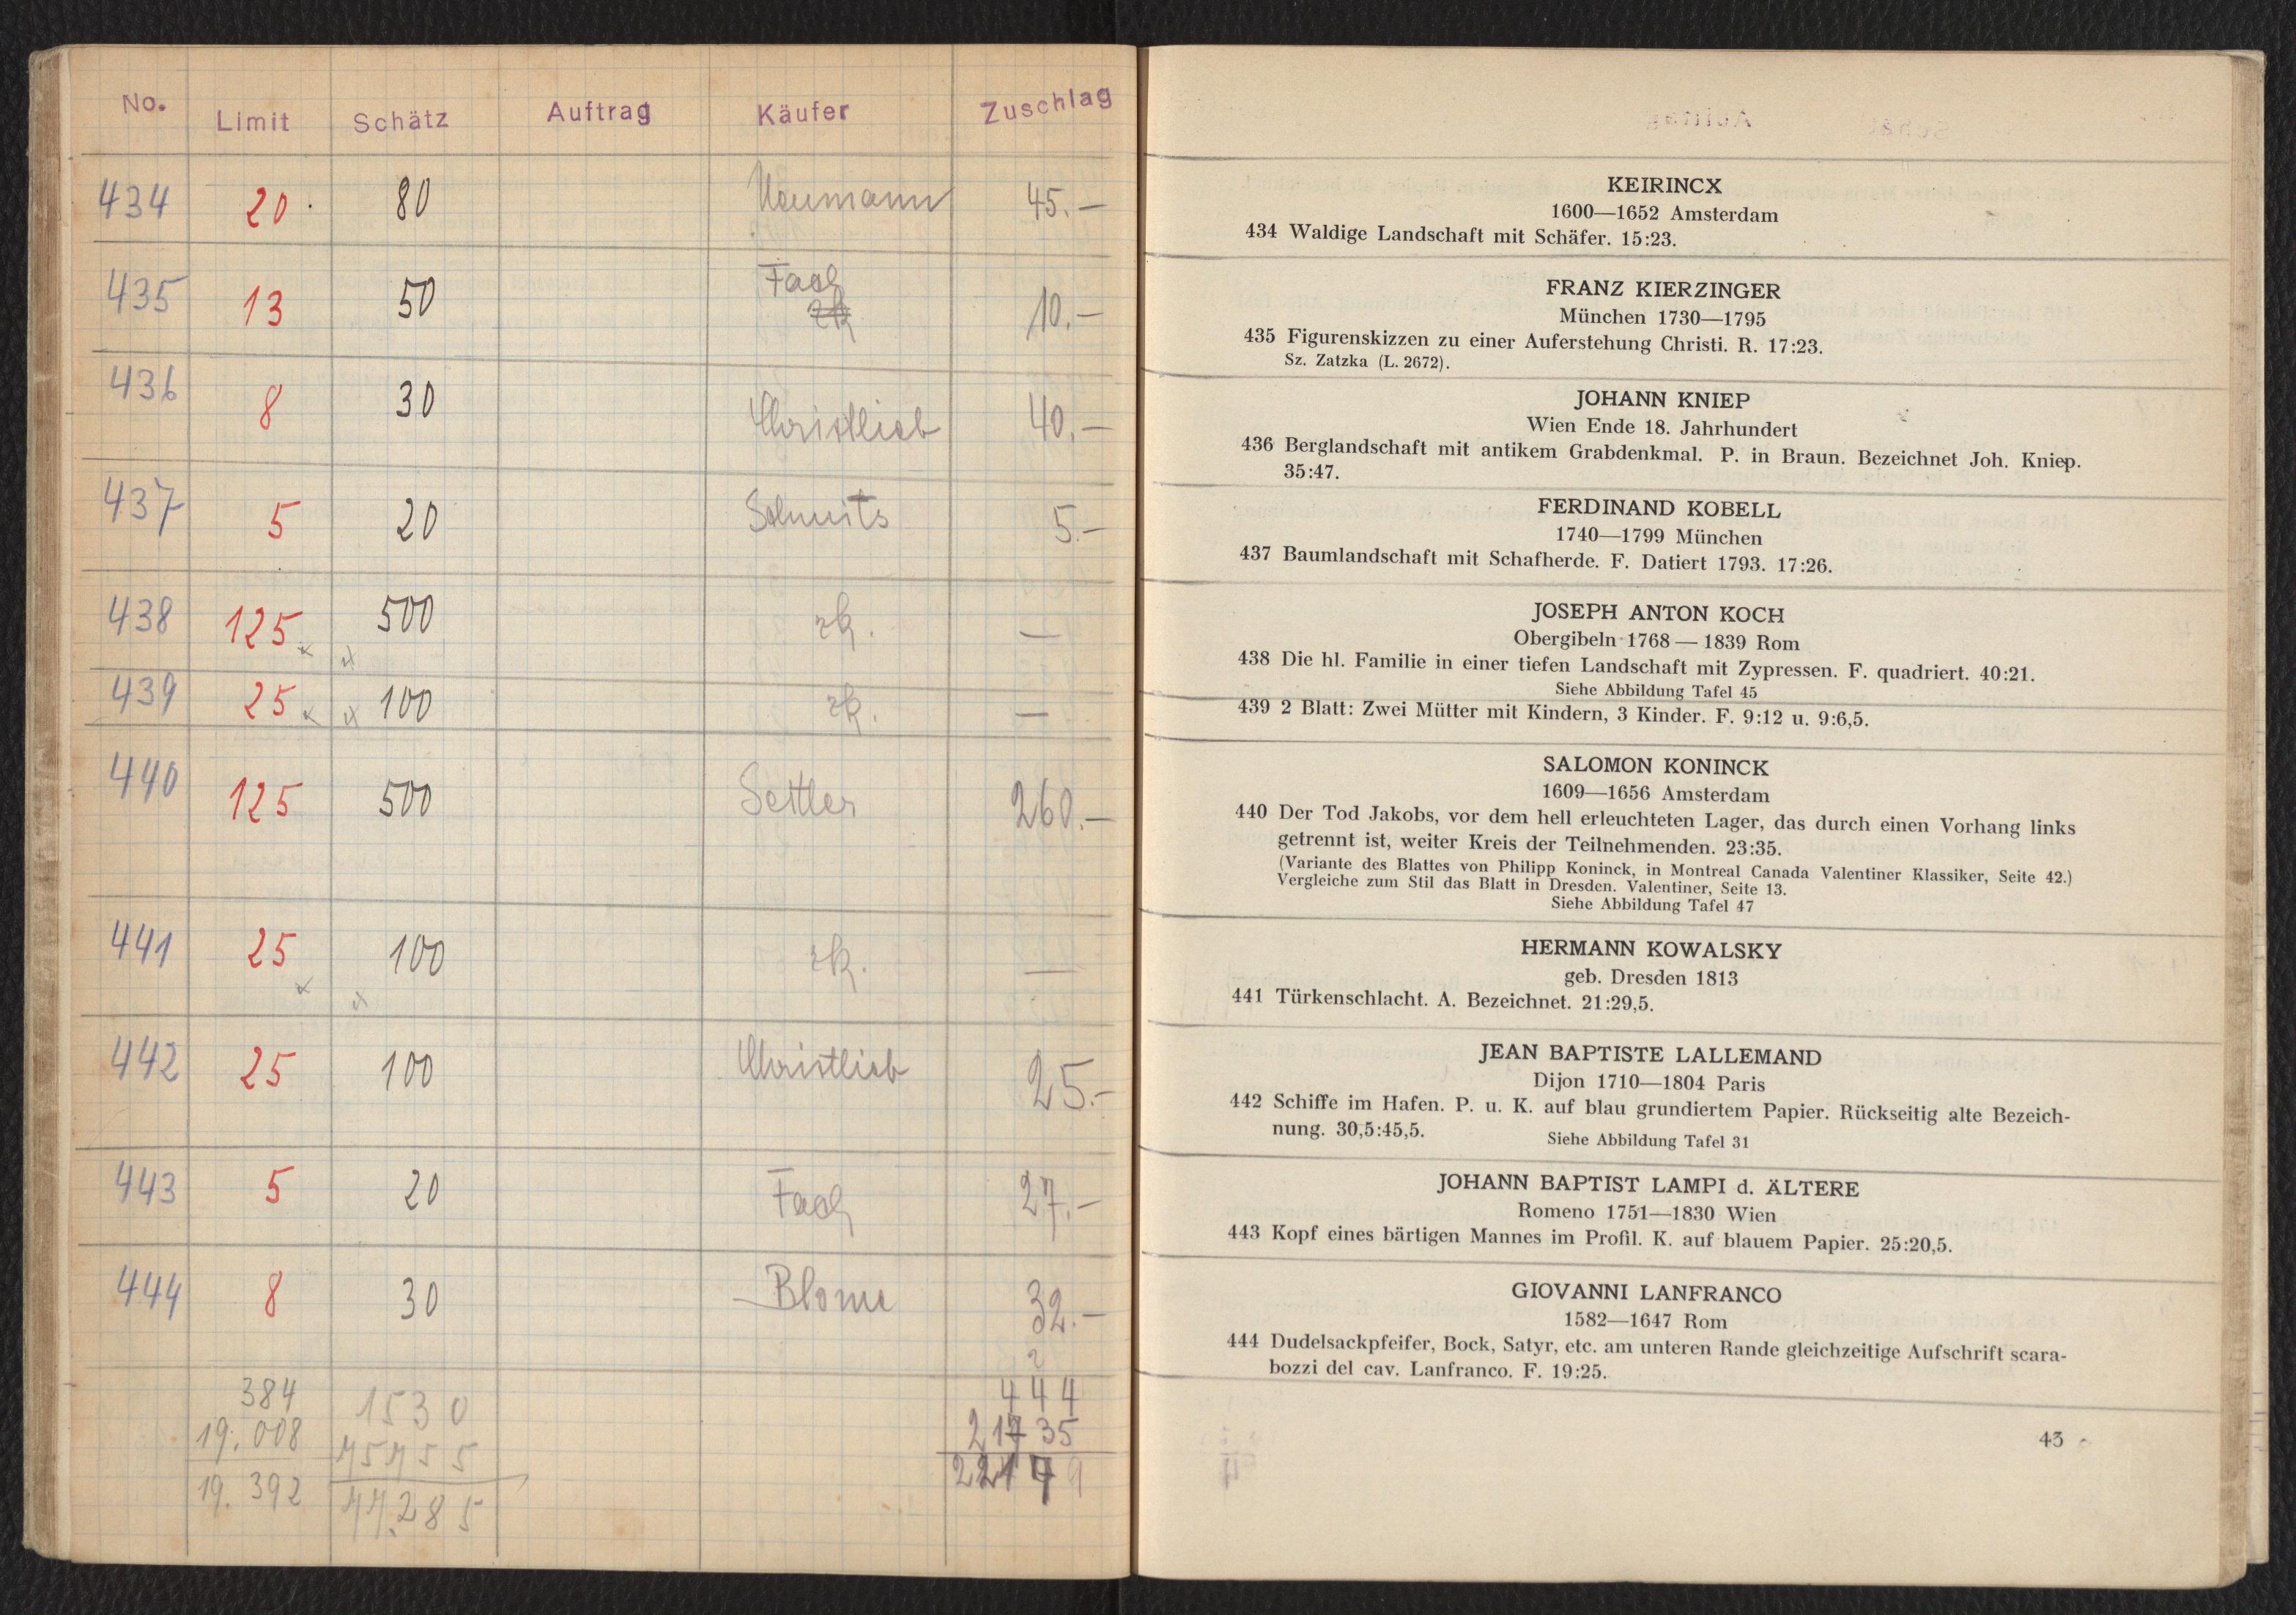 No. Limit Schätz Auftrag Käufer Zuschlag
434 20 80 Neumann 45.—
435 13 50 Fach 10.—
436 8 30 Christlieb 40.—
437 5 20 Schmits 5.—
438 125 500 zk. —
439 25 100 zk. —
440 125 500 Settler 260.—
441 25 100 zk. —
442 25 100 Christlieb 25.—
443 5 20 Fach 27.—
444 8 30 Blome 32.—
384 1530 444
19.008 21735
19.392 22179
KEIRINCX
1600—1652 Amsterdam
434 Waldige Landschaft mit Schäfer. 15:23.
FRANZ KIERZINGER
München 1730—1795
435 Figurenskizzen zu einer Auferstehung Christi. R. 17:23.
Sz. Zatzka (L. 2672).
JOHANN KNIEP
Wien Ende 18. Jahrhundert
436 Berglandschaft mit antikem Grabdenkmal. P. in Braun. Bezeichnet Joh. Kniep.
35:47.
FERDINAND KOBELL
1740—1799 München
437 Baumlandschaft mit Schafherde. F. Datiert 1793. 17:26.
JOSEPH ANTON KOCH
Obergibeln 1768 — 1839 Rom
438 Die hl. Familie in einer tiefen Landschaft mit Zypressen. F. quadriert. 40:21.
Siehe Abbildung Tafel 45
439 2 Blatt: Zwei Mütter mit Kindern, 3 Kinder. F. 9:12 u. 9:6,5.
SALOMON KONINCK
1609—1656 Amsterdam
440 Der Tod Jakobs, vor dem hell erleuchteten Lager, das durch einen Vorhang links
getrennt ist, weiter Kreis der Teilnehmenden. 23:35.
(Variante des Blattes von Philipp Koninck, in Montreal Canada Valentiner Klassiker, Seite 42.)
Vergleiche zum Stil das Blatt in Dresden. Valentiner, Seite 13.
Siehe Abbildung Tafel 47
HERMANN KOWALSKY
geb. Dresden 1813
441 Türkenschlacht. A. Bezeichnet. 21:29,5.
JEAN BAPTISTE LALLEMAND
Dijon 1710—1804 Paris
442 Schiffe im Hafen. P. u. K. auf blau grundiertem Papier. Rückseitig alte Bezeich-
nung. 30,5:45,5.
Siehe Abbildung Tafel 31
JOHANN BAPTIST LAMPI d. ÄLTERE
Romeno 1751—1830 Wien
443 Kopf eines bärtigen Mannes im Profil. K. auf blauem Papier. 25:20,5.
GIOVANNI LANFRANCO
1582—1647 Rom
444 Dudelsackpfeifer, Bock, Satyr, etc. am unteren Rande gleichzeitige Aufschrift scara-
bozzi del cav. Lanfranco. F. 19:25.
43